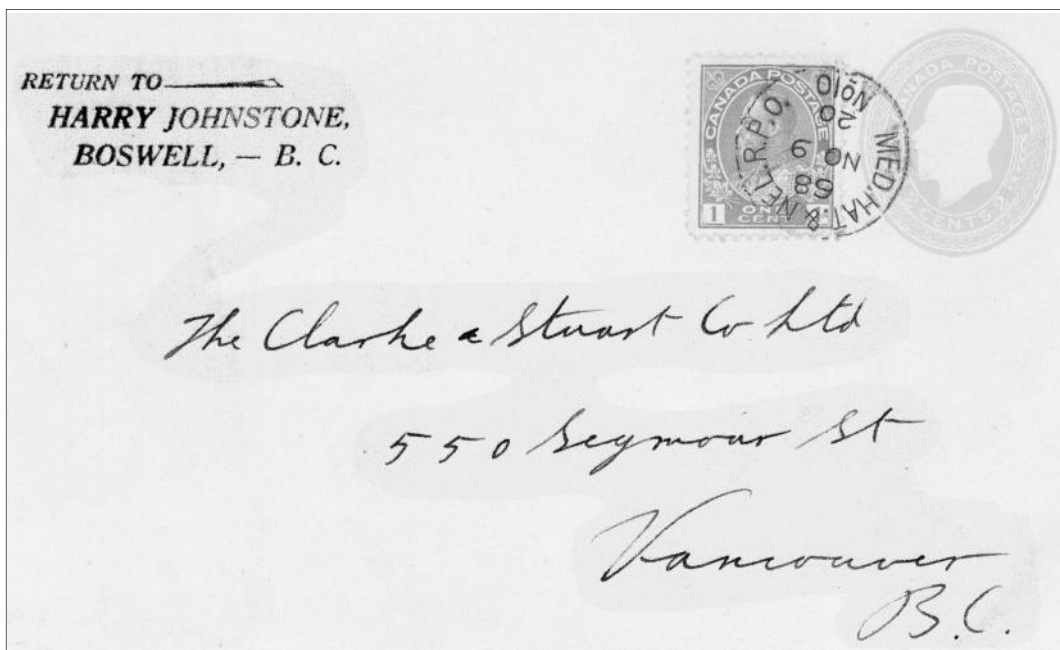 RETURN TO
HARRY JOHNSTONE,
BOSWELL, — B. C.
CANADA POSTAGE
1 ONE CENT
MED. HAT. & NEL. R.P.O.
No 10
20
CANADA POSTAGE
CENTS 2
The Clarke & Stuart Co Ltd
550 Seymour St
Vancouver
B.C.